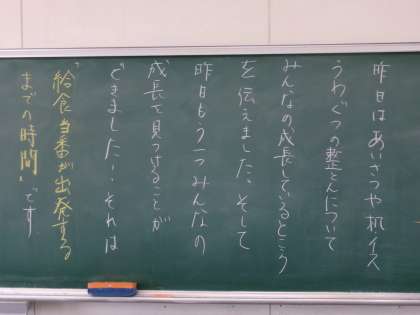 昨日はあいさつや机イス
うわぐつの整とんについて
みんなの成長しているところ
を伝えました。そして
昨日もう一つみんなの
成長を見つけることが
できました!!それは
"給食当番が出発する
までの時間"です